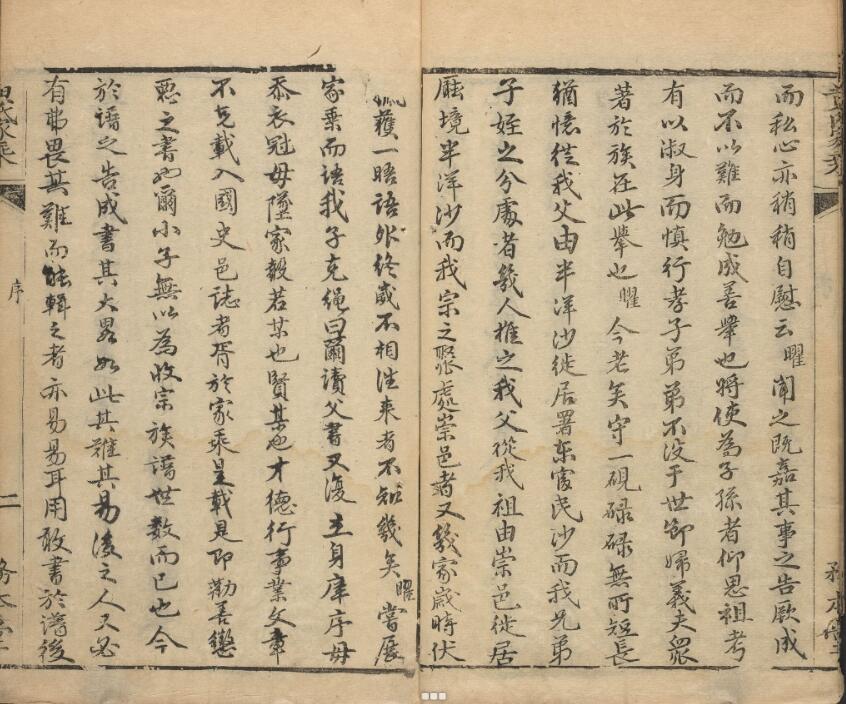 而私心亦稍稍自慰云曜聞之既嘉其事之告厥成
而不以難而勉成善舉也將使為子孫者仰思祖考
有以淑身而慎行孝子弟弟不没于世節婦義夫眾
著於族在此舉也曜今老矣守一硯碌碌無所短長
猶憶從我父由半洋沙徙居署東富民沙而我兄弟
子姪之分處者幾人推之我父從我祖由崇邑徙居
厰境半洋沙而我宗之聚處崇邑者又幾家歲時伏
臘獲一晤語外終歲不相往來者不知幾矣曜嘗展
家乗而語我子克繩曰爾讀父書又復立身庠序毋
忝衣冠毋墜家聲若某也賢某也才德行事業文章
不克載入國史邑誌者胥於家乗是載是即勸善懲
惡之書也爾小子無以為收宗族譜世數而已也今
於譜之告成書其大畧如此其難其易後之人又必
有弗畏其難而能輯之者亦易易耳用敢書於譜後
序
二